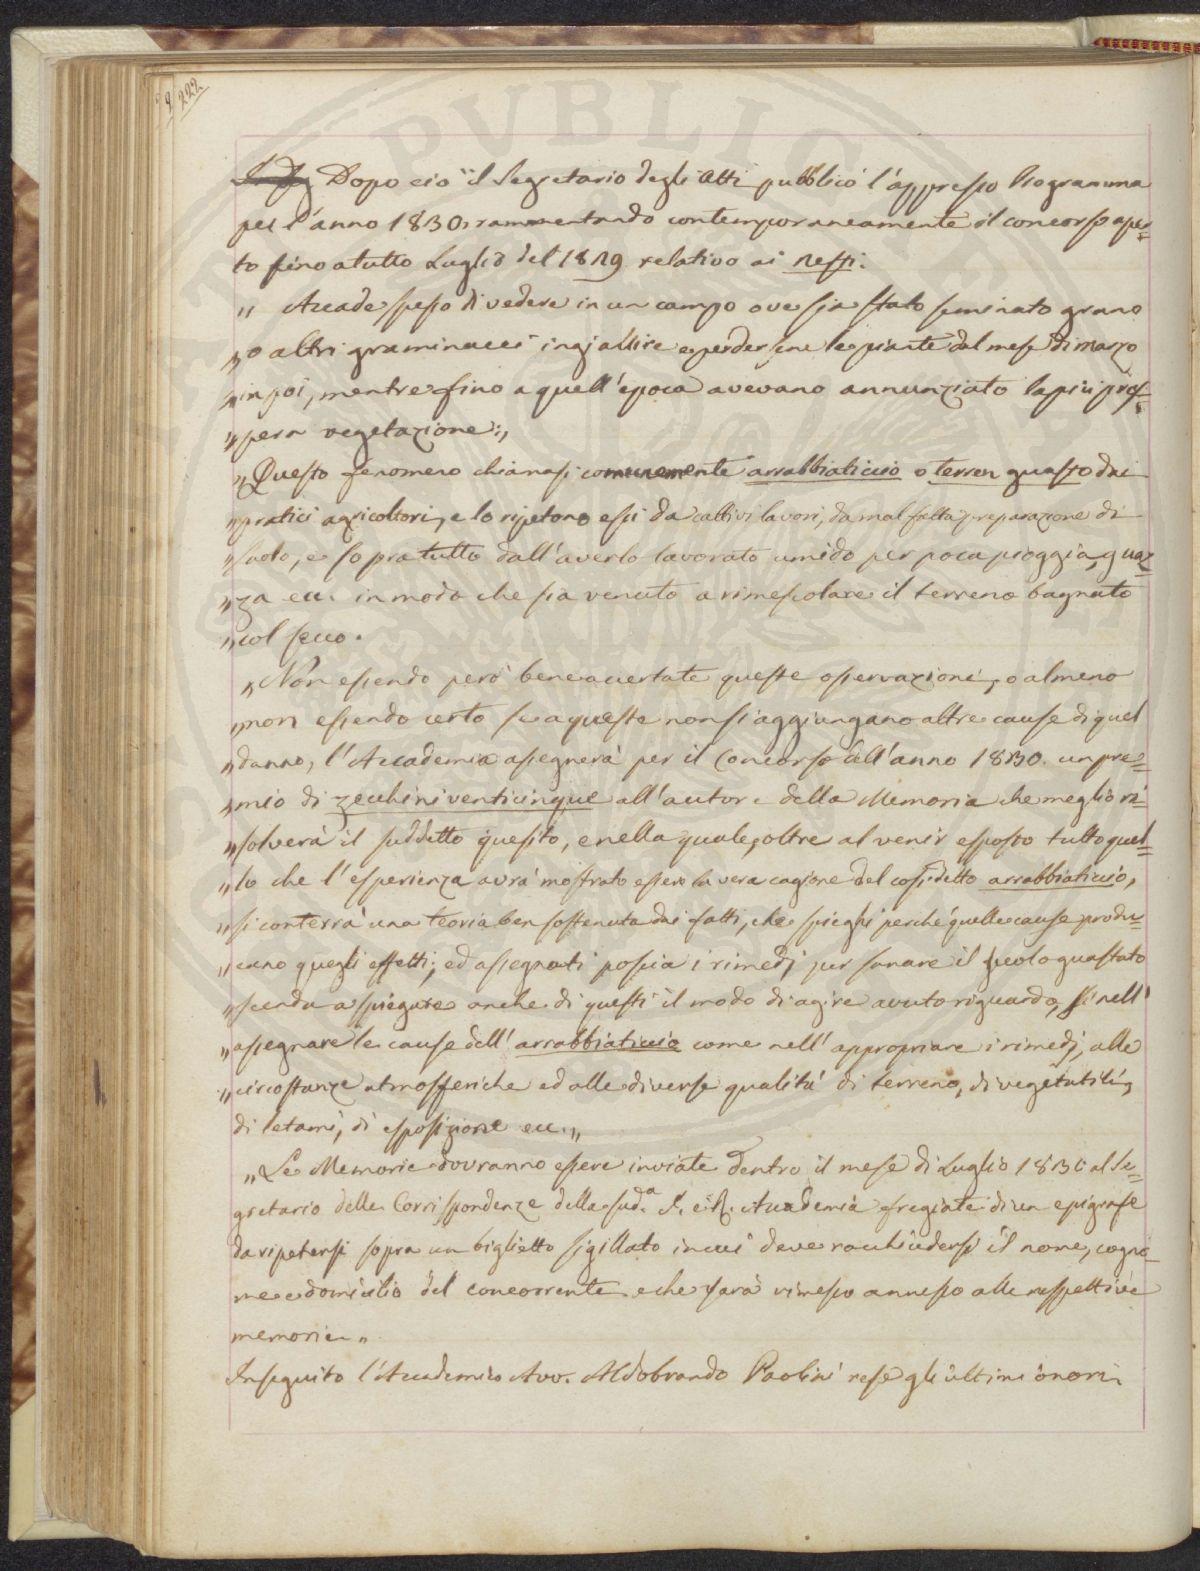 222
Dopo ciò il Segretario degli Atti pubblicò l'appresso Programma
per l'anno 1830, rammentando contemporaneamente il concorso aper=
to fino a tutto Luglio del 1829 relativo ai nessi.
„ Accade spesso di vedere in un campo ove sia stato seminato grano
„ o altri graminacei ingiallire e perdersene le piante dal mese di marzo
„ in poi, mentre fino a quell'epoca avevano annunziato la più pros=
„ pera vegetazione:„
„ Questo fenomeno chiamasi comunemente arrabbiaticcio o terren guasto dai
„ pratici agricoltori, e lo ripetono essi da cattivi lavori, da mal fatta preparazione di
„ suolo, e sopra tutto dall'averlo lavorato umido per poca pioggia, guaz=
„ za ecc. in modo che sia venuto a rimescolare il terreno bagnato
„ col secco.
„ Non essendo però bene accertate queste osservazioni, o almeno
„ non essendo certo se a queste non si aggiungano altre cause di quel
„ danno, l'Accademia assegnerà per il Concorso dell'anno 1830. un pre=
„ mio di zecchini venticinque all'autore della Memoria che meglio ri=
„ solverà il suddetto quesito, e nella quale, oltre al venir esposto tutto quel=
„ lo che l'esperienza avrà mostrato essere la vera cagione del cosidetto arrabbiaticcio,
„ si conterrà una teoria ben sostenuta dai fatti, che spieghi perchè quelle cause produ=
„ cano quegli effetti; ed assegnati poscia i rimedj per sanare il suolo guastato
„ scenda a spiegare anche di questi il modo di agire avuto riguardo, sì nell'
„ assegnare le cause dell'arrabbiaticcio come nell'appropriare i rimedj, alle
„ circostanze atmosferiche ed alle diverse qualità di terreno, di vegetabili,
di letami, di esposizione ecc.„
„ Le Memorie dovranno essere inviate dentro il mese di Luglio 1830 al Se=
gretario delle Corrispondenze della sud.ª I. e R. Accademia fregiate di un epigrafe
da ripetersi sopra un biglietto sigillato in cui deve racchiudersi il nome, cogno=
me e domicilio del concorrente e che sarà rimesso annesso alle rispettive
memorie„
In seguito l'Accademico Avv. Aldobrando Paolini rese gli ultimi onori
PVBLICE